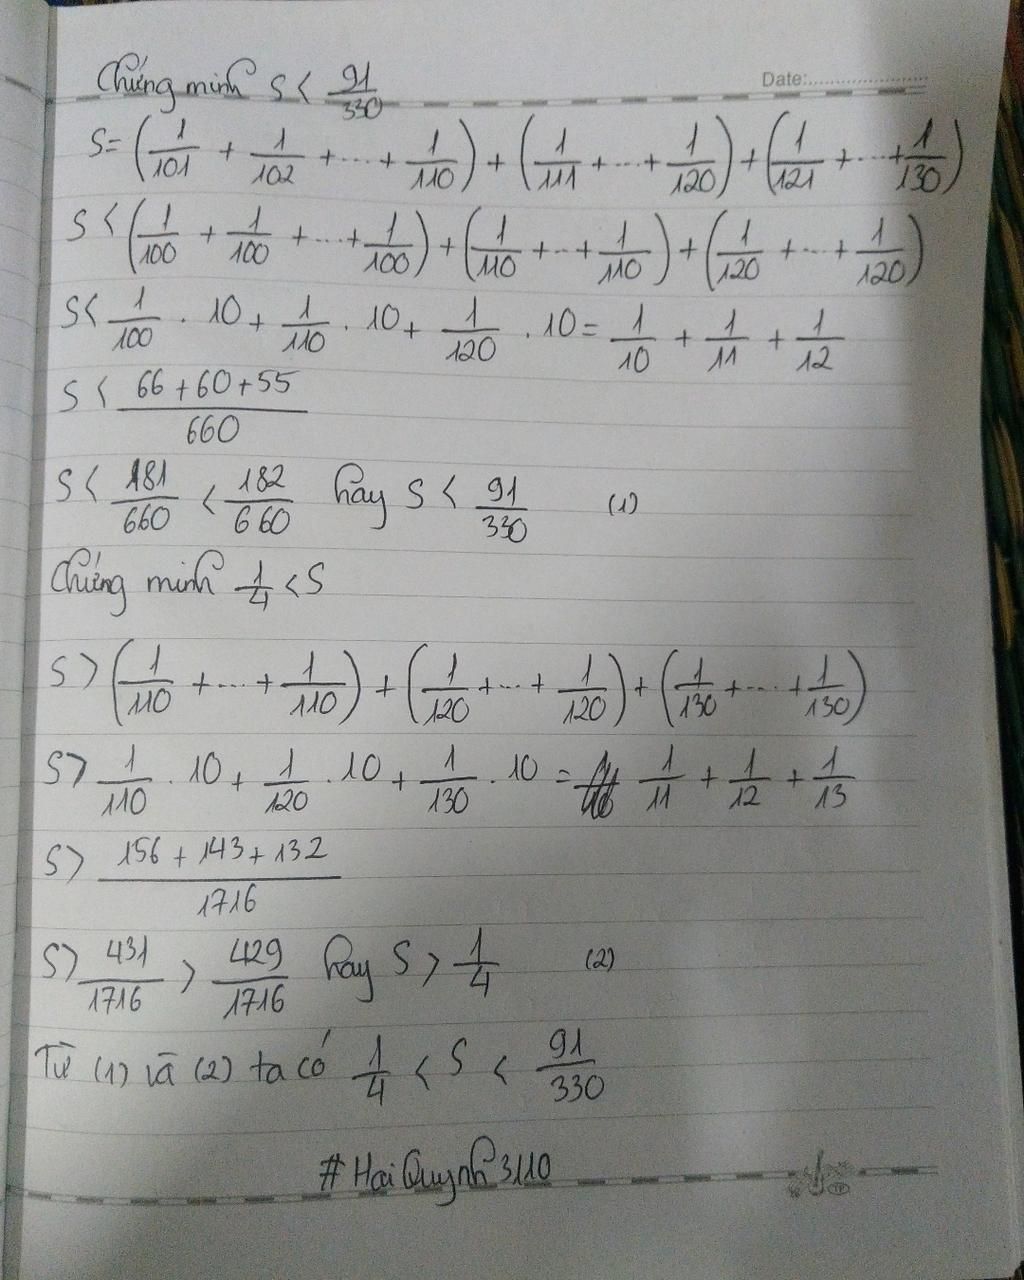 Chứng minh S < 91/330
Date:
S = (1/101 + 1/102 + ... + 1/110) + (1/111 + ... + 1/120) + (1/121 + ... + 1/130)
S < (1/100 + 1/100 + ... + 1/100) + (1/110 + ... + 1/110) + (1/120 + ... + 1/120)
S < 1/100 . 10 + 1/110 . 10 + 1/120 . 10 = 1/10 + 1/11 + 1/12
S < (66 + 60 + 55)/660
S < 181/660 < 182/660 hay S < 91/330 (1)
Chứng minh 1/4 < S
S > (1/110 + ... + 1/110) + (1/120 + ... + 1/120) + (1/130 + ... + 1/130)
S > 1/110 . 10 + 1/120 . 10 + 1/130 . 10 = 1/11 + 1/12 + 1/13
S > (156 + 143 + 132)/1716
S > 431/1716 > 429/1716 hay S > 1/4 (2)
Từ (1) và (2) ta có 1/4 < S < 91/330
#HaiQuynh3110